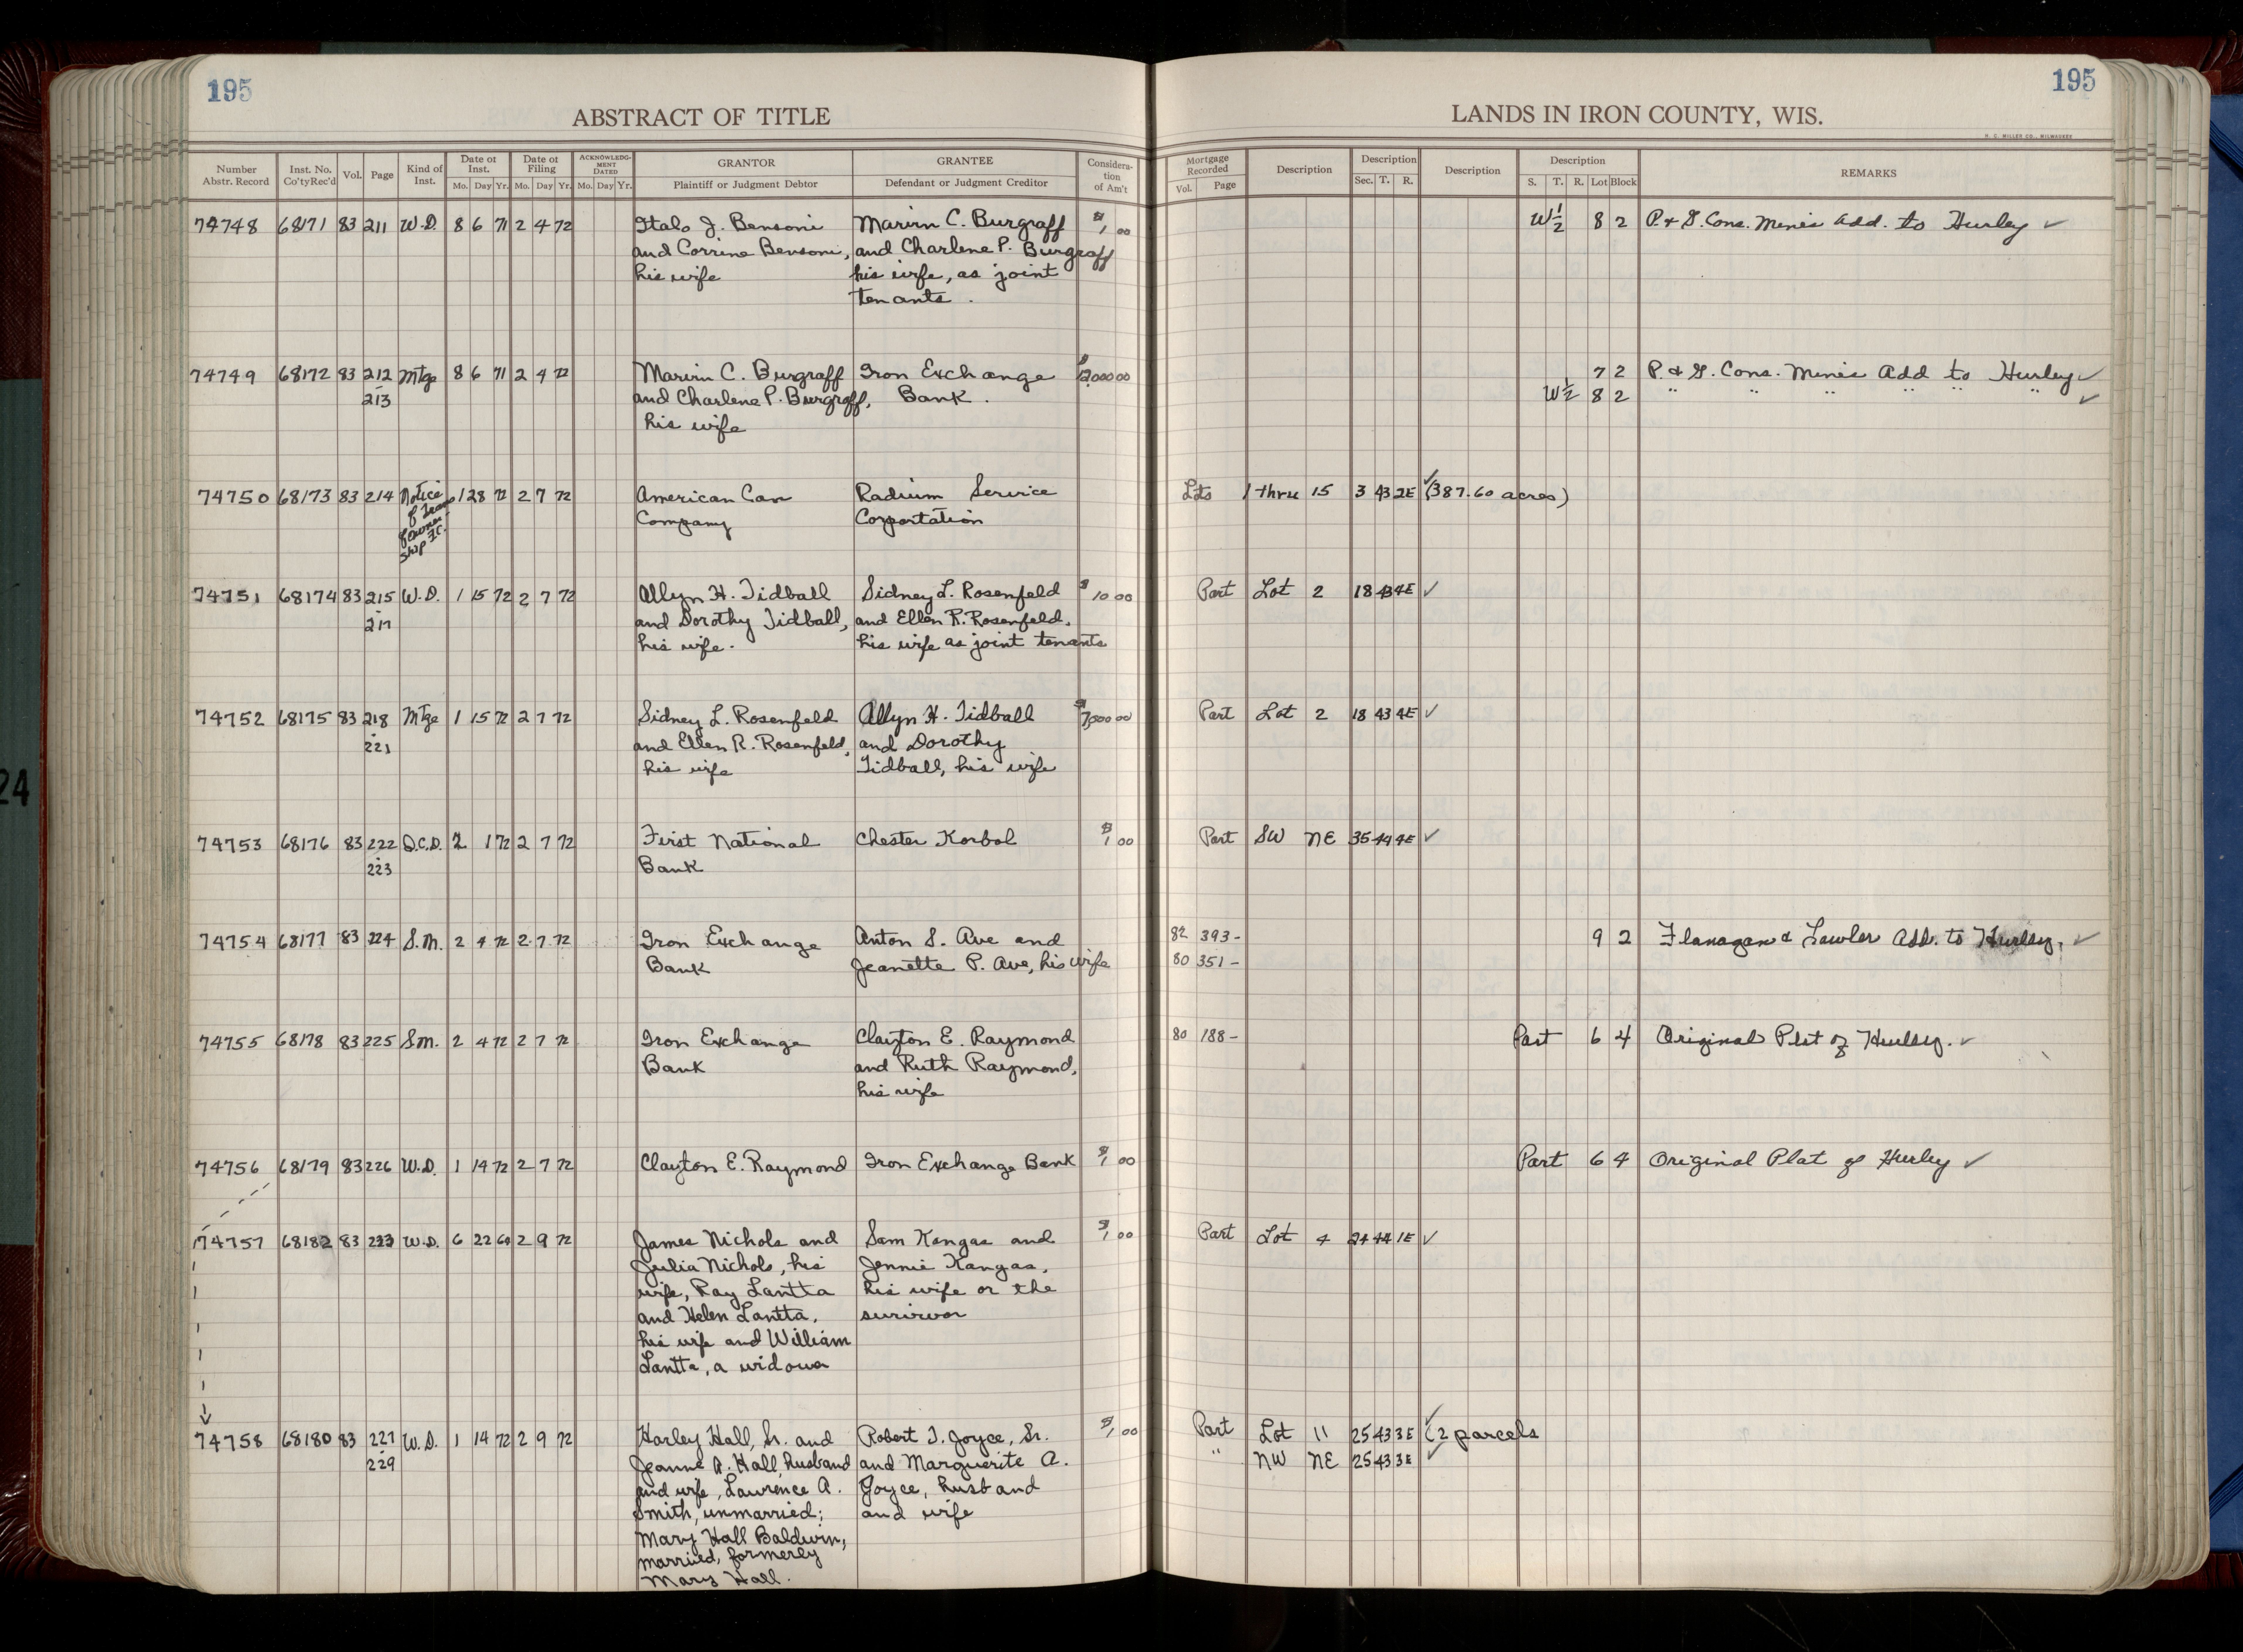 195
195
ABSTRACT OF TITLE
LANDS IN IRON COUNTY, WIS.
Number Abstr. Record Inst. No. Co'tyRec'd Vol. Page Kind of Inst. Date of Inst. Mo. Day Yr. Date of Filing Mo. Day Yr. ACKNOWLEDGMENT DATED Mo. Day Yr. GRANTOR Plaintiff or Judgment Debtor GRANTEE Defendant or Judgment Creditor Consideration of Am't Mortgage Recorded Vol. Page Description Description Sec. T. R. Description Description S. T. R. Lot Block REMARKS
74748 68171 83 211 W.D. 8 6 71 2 4 72 Italo J. Bensoni Marvin C. Burgraff $1 00 W½ 8 2 P. & G. Cons. Mines Add. to Hurley ✓
and Corrine Bensoni, and Charlene P. Burgraff
his wife his wife, as joint
tenants.
74749 68172 83 212 Mtge 8 6 71 2 4 72 Marvin C. Burgraff Iron Exchange 7 2 P. & G. Cons. Mines Add to Hurley ✓
213 and Charlene P. Burgraff, Bank. W½ 8 2 " " " " " " ✓
his wife
74750 68173 83 214 Notice 1 28 72 2 7 72 American Can Radium Service Lots 1 thru 15 3 43 2E ✓ (387.60 acres)
of Tran Company Corportation
of Owner
ship
74751 68174 83 215 W.D. 1 15 72 2 7 72 Allyn H. Tidball Sidney L. Rosenfeld $10 00 Part Lot 2 18 43 4E ✓
217 and Dorothy Tidball, and Ellen R. Rosenfeld,
his wife. his wife as joint tenants
74752 68175 83 218 Mtge 1 15 72 2 7 72 Sidney L. Rosenfeld Allyn H. Tidball $7,000 00 Part Lot 2 18 43 4E ✓
221 and Ellen R. Rosenfeld, and Dorothy
his wife Tidball, his wife
74753 68176 83 222 Q.C.D. 2 1 72 2 7 72 First National Chester Korbol $1 00 Part SW NE 35 44 4E ✓
223 Bank
74754 68177 83 224 S.M. 2 4 72 2 7 72 Iron Exchange Anton S. Ave and 82 393- 9 2 Flanagan & Lawler Add. to Hurley. ✓
Bank Jeanette P. Ave, his wife 80 351-
74755 68178 83 225 S.M. 2 4 72 2 7 72 Iron Exchange Clayton E. Raymond 80 188- Part 6 4 Original Plat of Hurley. ✓
Bank and Ruth Raymond,
his wife
74756 68179 83 226 W.D. 1 14 72 2 7 72 Clayton E. Raymond Iron Exchange Bank $1 00 Part 6 4 Original Plat of Hurley ✓
74757 68182 83 233 W.D. 6 22 60 2 9 72 James Nichols and Sam Kangas and $1 00 Part Lot 4 24 44 1E ✓
Julia Nichols, his Jennie Kangas,
wife, Ray Lantta his wife or the
and Helen Lantta, survivor
his wife and William
Lantta, a widower
74758 68180 83 227 W.D. 1 14 72 2 9 72 Harley Hall, Sr. and Robert J. Joyce, Sr. $1 00 Part Lot 11 25 43 3E ✓ (2 parcels
229 Jeanne A. Hall, husband and Marguerite A. " NW NE 25 43 3E ✓
and wife, Lawrence A. Joyce, husband
Smith, unmarried; and wife
Mary Hall Baldwin,
married, formerly
Mary Hall.
24